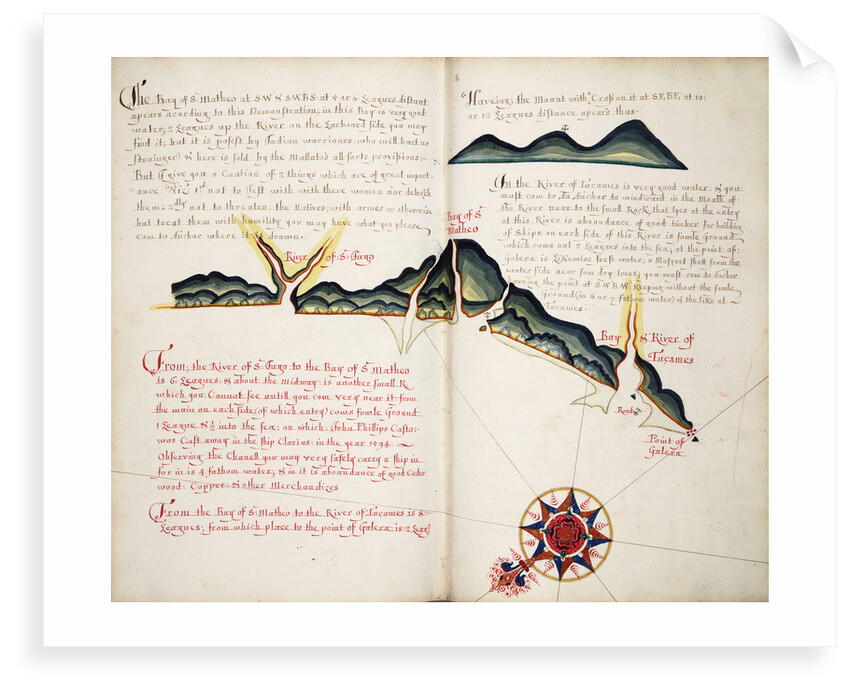 The Bay of St Matheo at SW & SWBS: at 4 or 6 Leagues distant
apears acording to this Demonstration; in this Bay is very good
water; 2 Leagues up the River on the Larboard side you may
find it, but it is posest by Indian warriours (who will hurt no
strainger) & here is sold by the Mallato's all sorts provisions;
But I give you a Caution of 2 things which are of great import-
ance Viz; 1st not to Jest with with there women nor debauch
them; 2dly not to threaten the Natives; with armes or otherwise
but treat them with humility you may have what you please
com to Anchor where it is drawn.
River of: St: Jago
From; the River of St: Jago to the Bay of St Matheo
is 6: Leagues; & about the midway: is another small R
which you Cannot see untill you com very near it from
the main on each side (of which entry) coms fowle Ground
1 League & ½ into the sea; on which; John Phillipo Casto:
was Cast away in the ship Clarius: in the year 1594:
Observing the Chanell you may very safely carry a ship in
for in is 4 fathom water; & in it is aboundance of good Cedar
wood: Copper: & other Merchandizes
From the Bay of St: Matheo to the River of Tucames is 8:
Leagues; from which place to the point of Galera: is: 2 Leags
Haveing; the Mount with ye Cross on it at SEBE at 10:
or 12 Leagues distance apears thus:
Bay of St
Matheo
In the River of Tucames is very good water: & you
must com to An Anchor to windward in the mouth of
the River near to the small Rock that lyes at the entry
at this River is aboundance of good timber for building
of Ships; on each side of this River is fowle Ground
which coms out 2 Leagues into the sea; at the point of:
Galera: is Likewise fresh water; a Musquet shott from the
water side near som dry trees; you must com to Anchor
haveing the point at SWBW Keeping without the fowle
Ground (in 6 or 7 fathom water) & the like at
Tucames
Bay & River of
Tucames
Point of
Galera